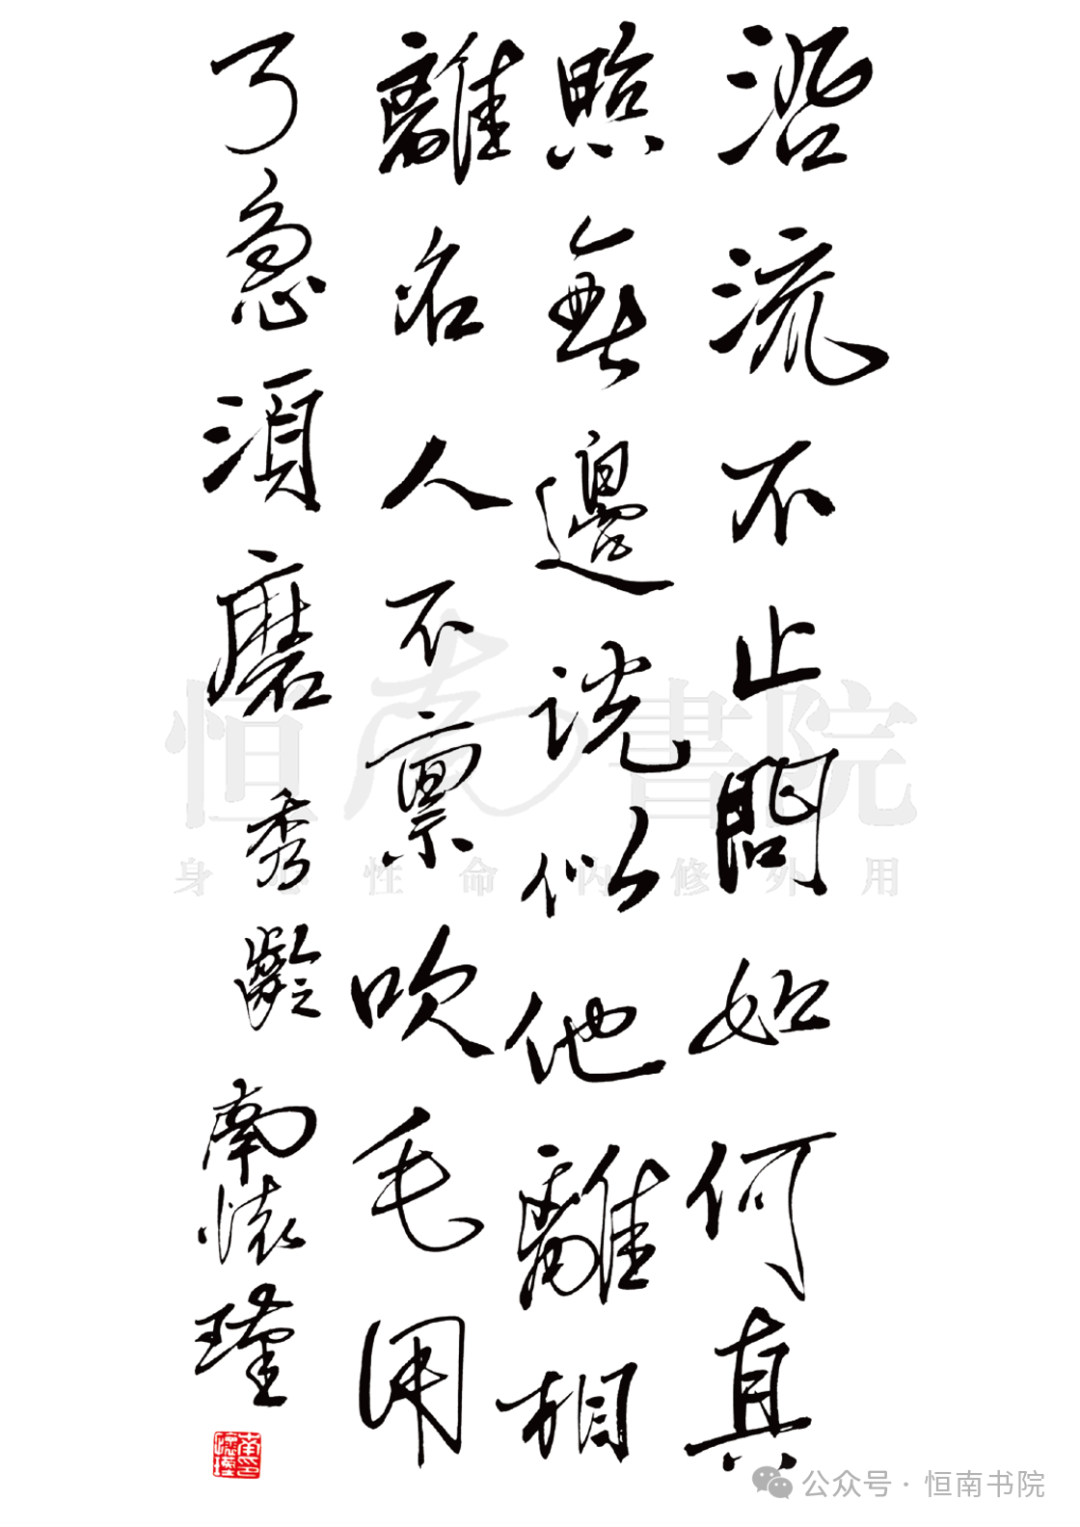 沿流不止問如何真
照無邊說似他離相
離名人不禀吹毛用
了急須磨 秀齡 南懷瑾
南懷瑾印
恒南書院
身心性命 内修外用
公众号 · 恒南书院